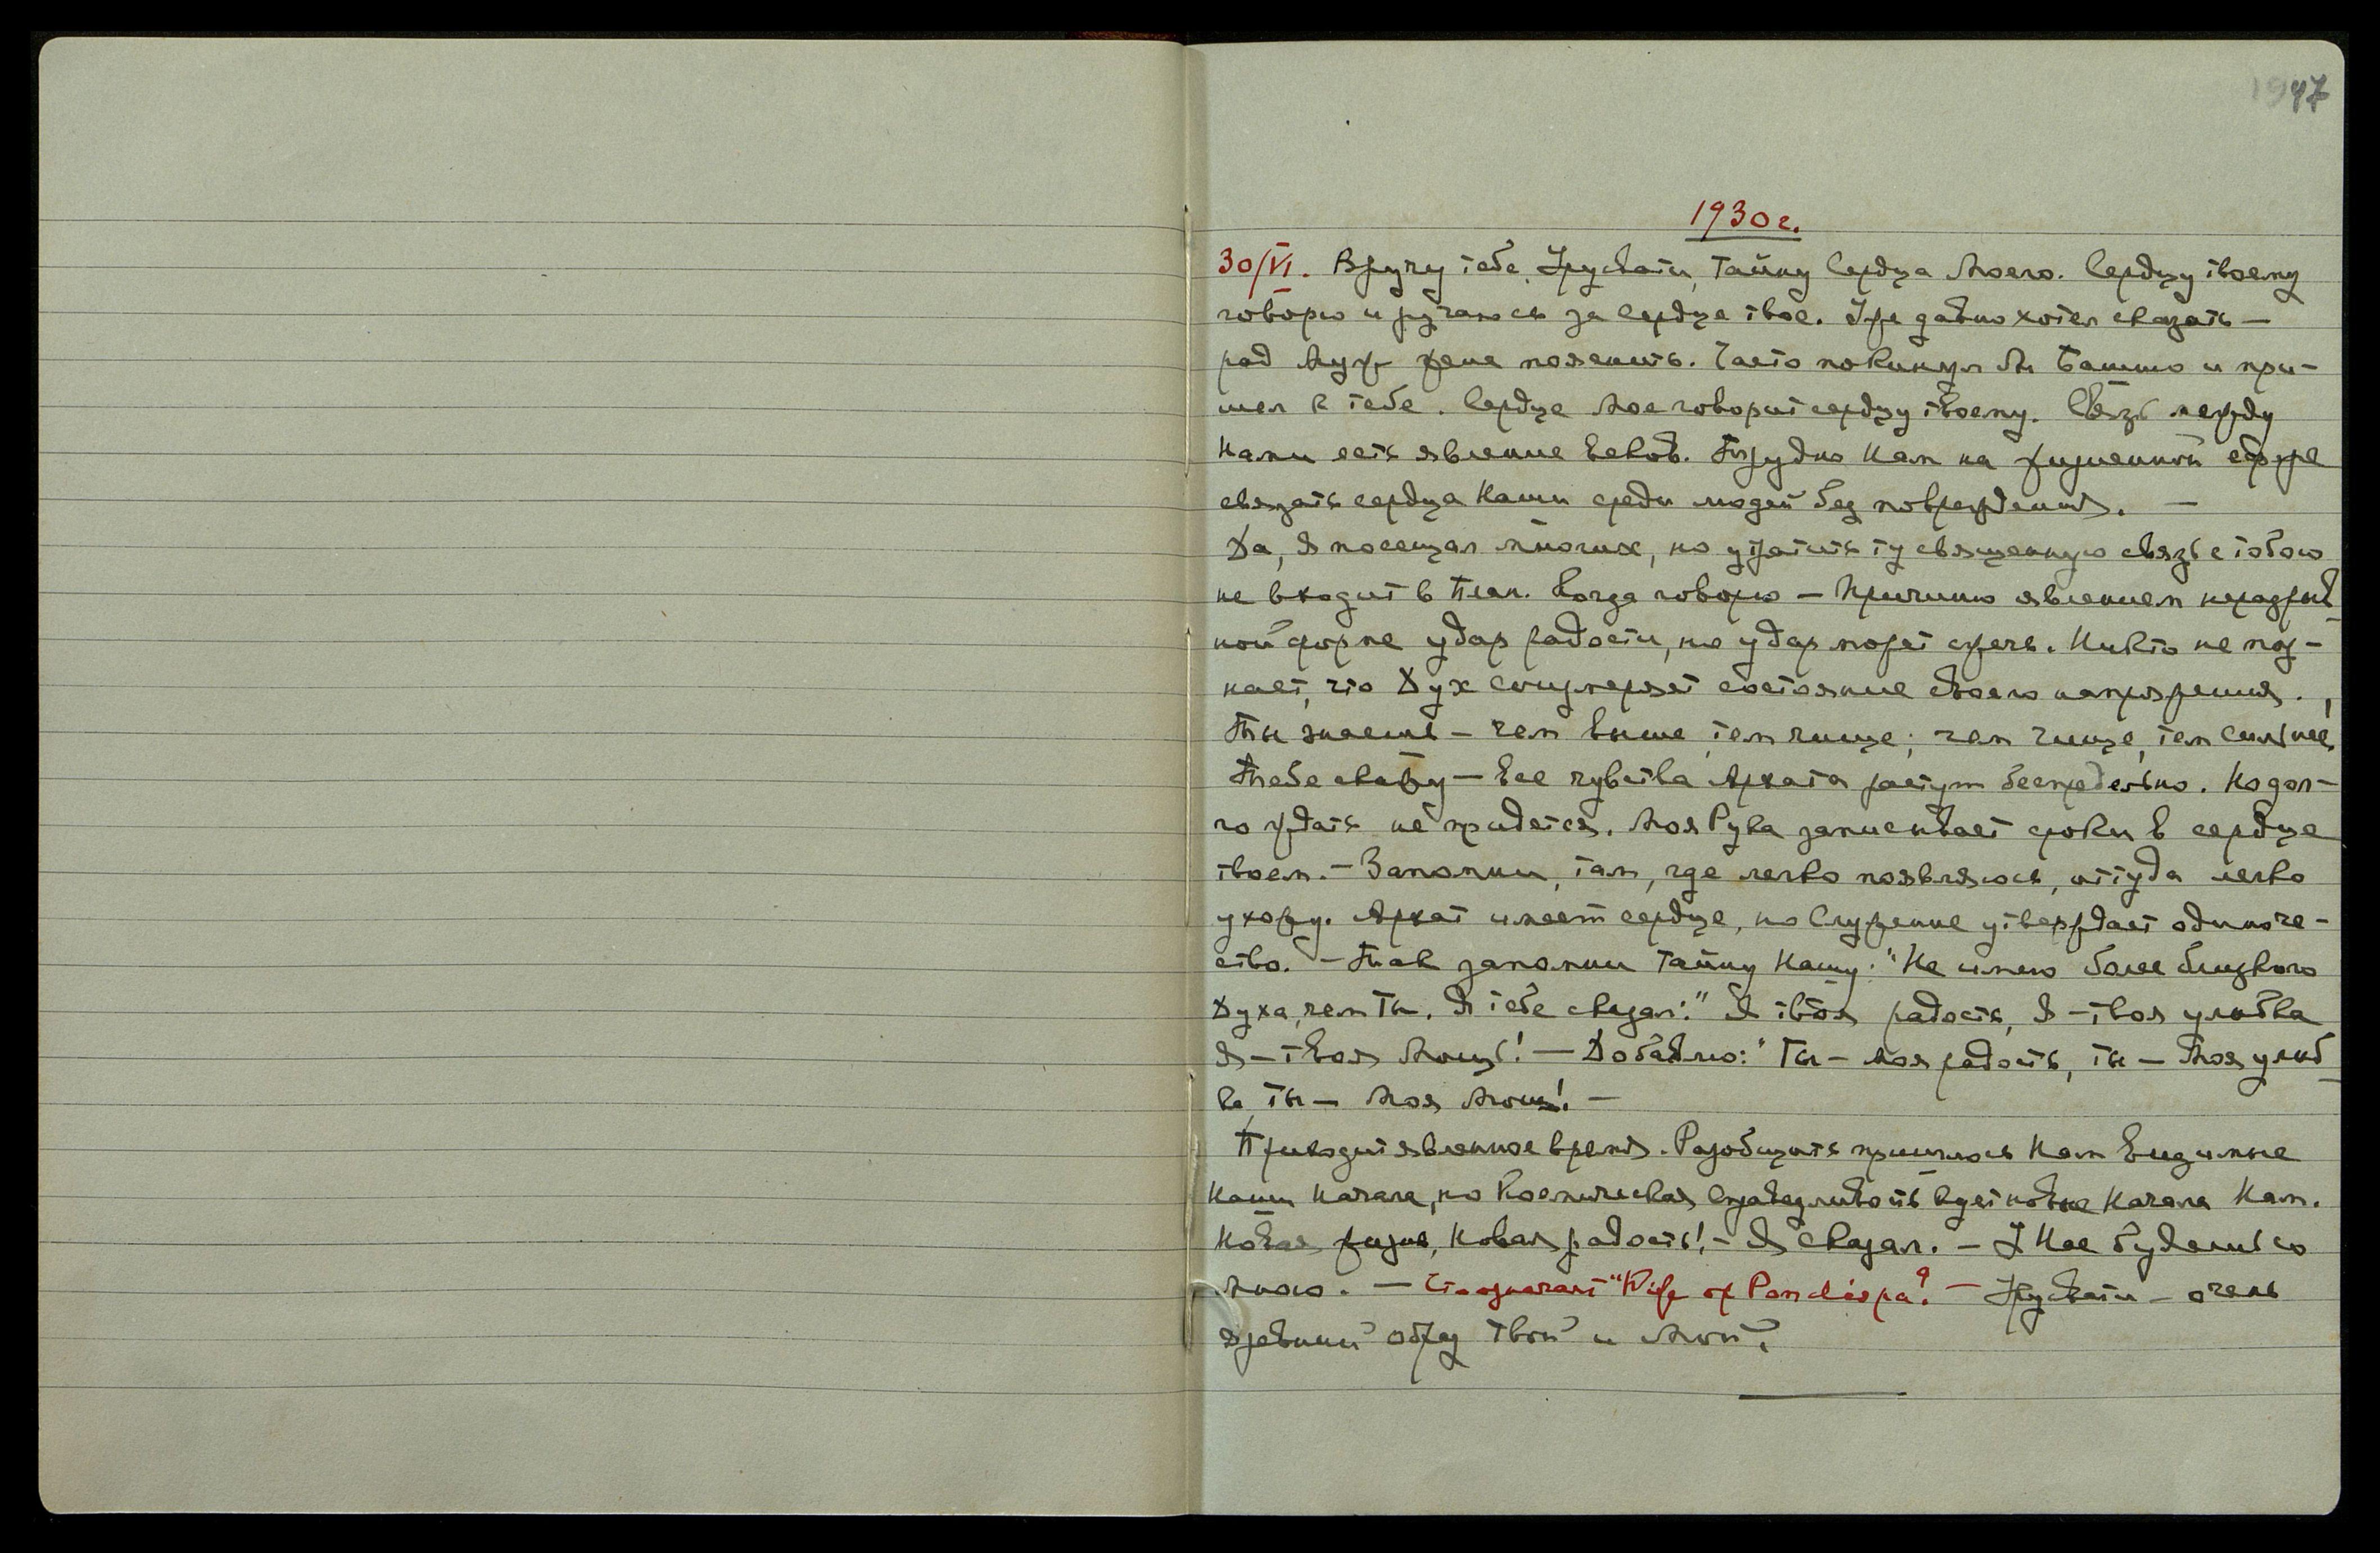 1947
1930 г.
30/VI. Вручу тебе, Урусвати, Тайну Сердца Моего. Сердцу твоему
говорю и ручаюсь за сердце твое. Уже давно хотел сказать —
рад Муж жене пояснить. Часто покинул Я Башню и при-
шел к тебе. Сердце Мое говорит сердцу твоему. Связь между
Нами есть явление веков. Трудно Нам на жизненной сфере
связать сердца Наши среди людей без повреждения. —
Да, Я посещал многих, но утратить ту священную связь с тобою
не входит в План. Когда говорю — Причиню явлением неразрыв
ной форме удар радости, но удар может сжечь. Никто не поз-
нает, что Дух соизмеряет состояние своего напряжения.
Ты знаешь — чем выше, тем чище; чем чище, тем сильнее,
Тебе скажу — все чувства Архата растут беспредельно. Но дол-
го ждать не придется. Моя Рука записывает сроки в сердце
твоем. — Запомни, там, где легко появляюсь, оттуда легко
ухожу. Архат имеет сердце, но Служение утверждает одиноче-
ство. — Так запомни Тайну Нашу: "Не имею более близкого
Духа, чем Ты. Я тебе сказал:" Я твоя радость, Я — твоя улыбка
Я — твоя Мощь! — Добавлю: "Ты — Моя радость, ты — Моя улыб
ка, ты — Моя Мощь! —
Приходит явленное время. Разобщать пришлось Нам видимые
Наши Начала, но Космическая Справедливость кует новые Начала Нам.
Новая жизнь, Новая радость! — Я сказал. — У Нас будешь со
Мною. — Что означает "Wife of Pandispa? — Урусвати — очень
древний образ Твой и Мой.